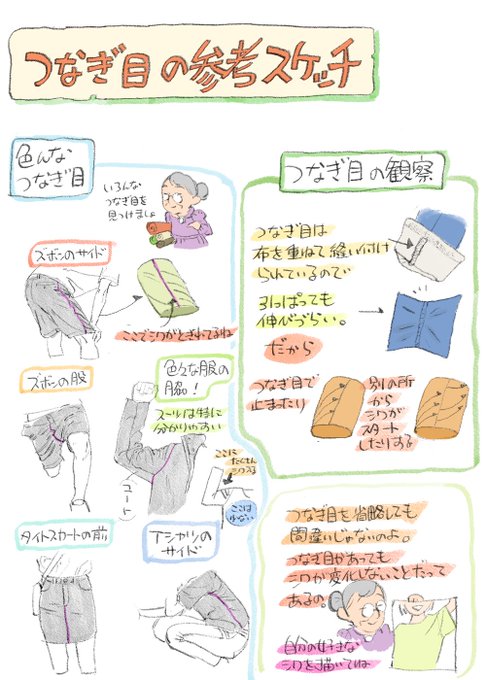 つなぎ目の参考スケッチ
色んな
つなぎ目
いろんな
つなぎ目を
見つけましょ
ズボンのサイド
ここでシワがとぎれてるね
ズボンの股
色々な服の
脇!
スーツは特に
分かりやすい
ここに
たくさん
シワよる
ここは
少ない
タイトスカートの前
Tシャツの
サイド
つなぎ目の観察
つなぎ目は
布を重ねて縫い付け
られているので
引っぱっても
伸びづらい。
だから
つなぎ目で
止まったり
別の所
から
シワが
スタート
したりする
つなぎ目を省略しても
間違いじゃないのよ。
つなぎ目があっても
シワが変化しないことだって
あるの
自分の好きな
シワを描いてね